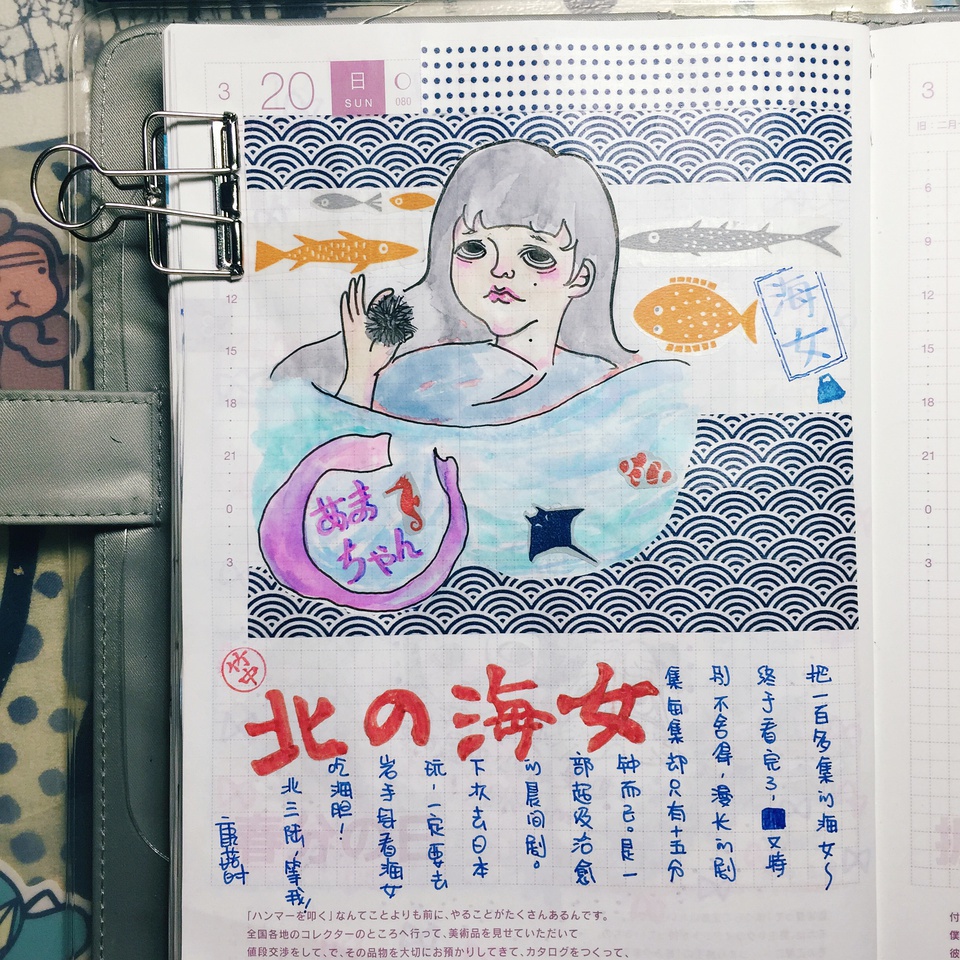 3
20
日
SUN
080
3
旧:二月
6
9
12
15
18
21
0
3
12
15
18
21
0
3
海女
あま
ちゃん
竹中
北の海女
把一百多集的海女~
终于看完了,又特
别不舍得,漫长的剧
集每集却只有十五分
钟而已。是一
部超级治愈
的晨间剧。
下次去日本
玩,一定要去
岩手县看海女
吃海胆!
北三陆,等我!
「ハンマーを叩く」なんてことよりも前に、やることがたくさんあるんです。
全国各地のコレクターのところへ行って、美術品を見せていただいて
値段交渉をして、で、その品物を大切にお預かりしてきて、カタログをつくって、
付
僕
彼